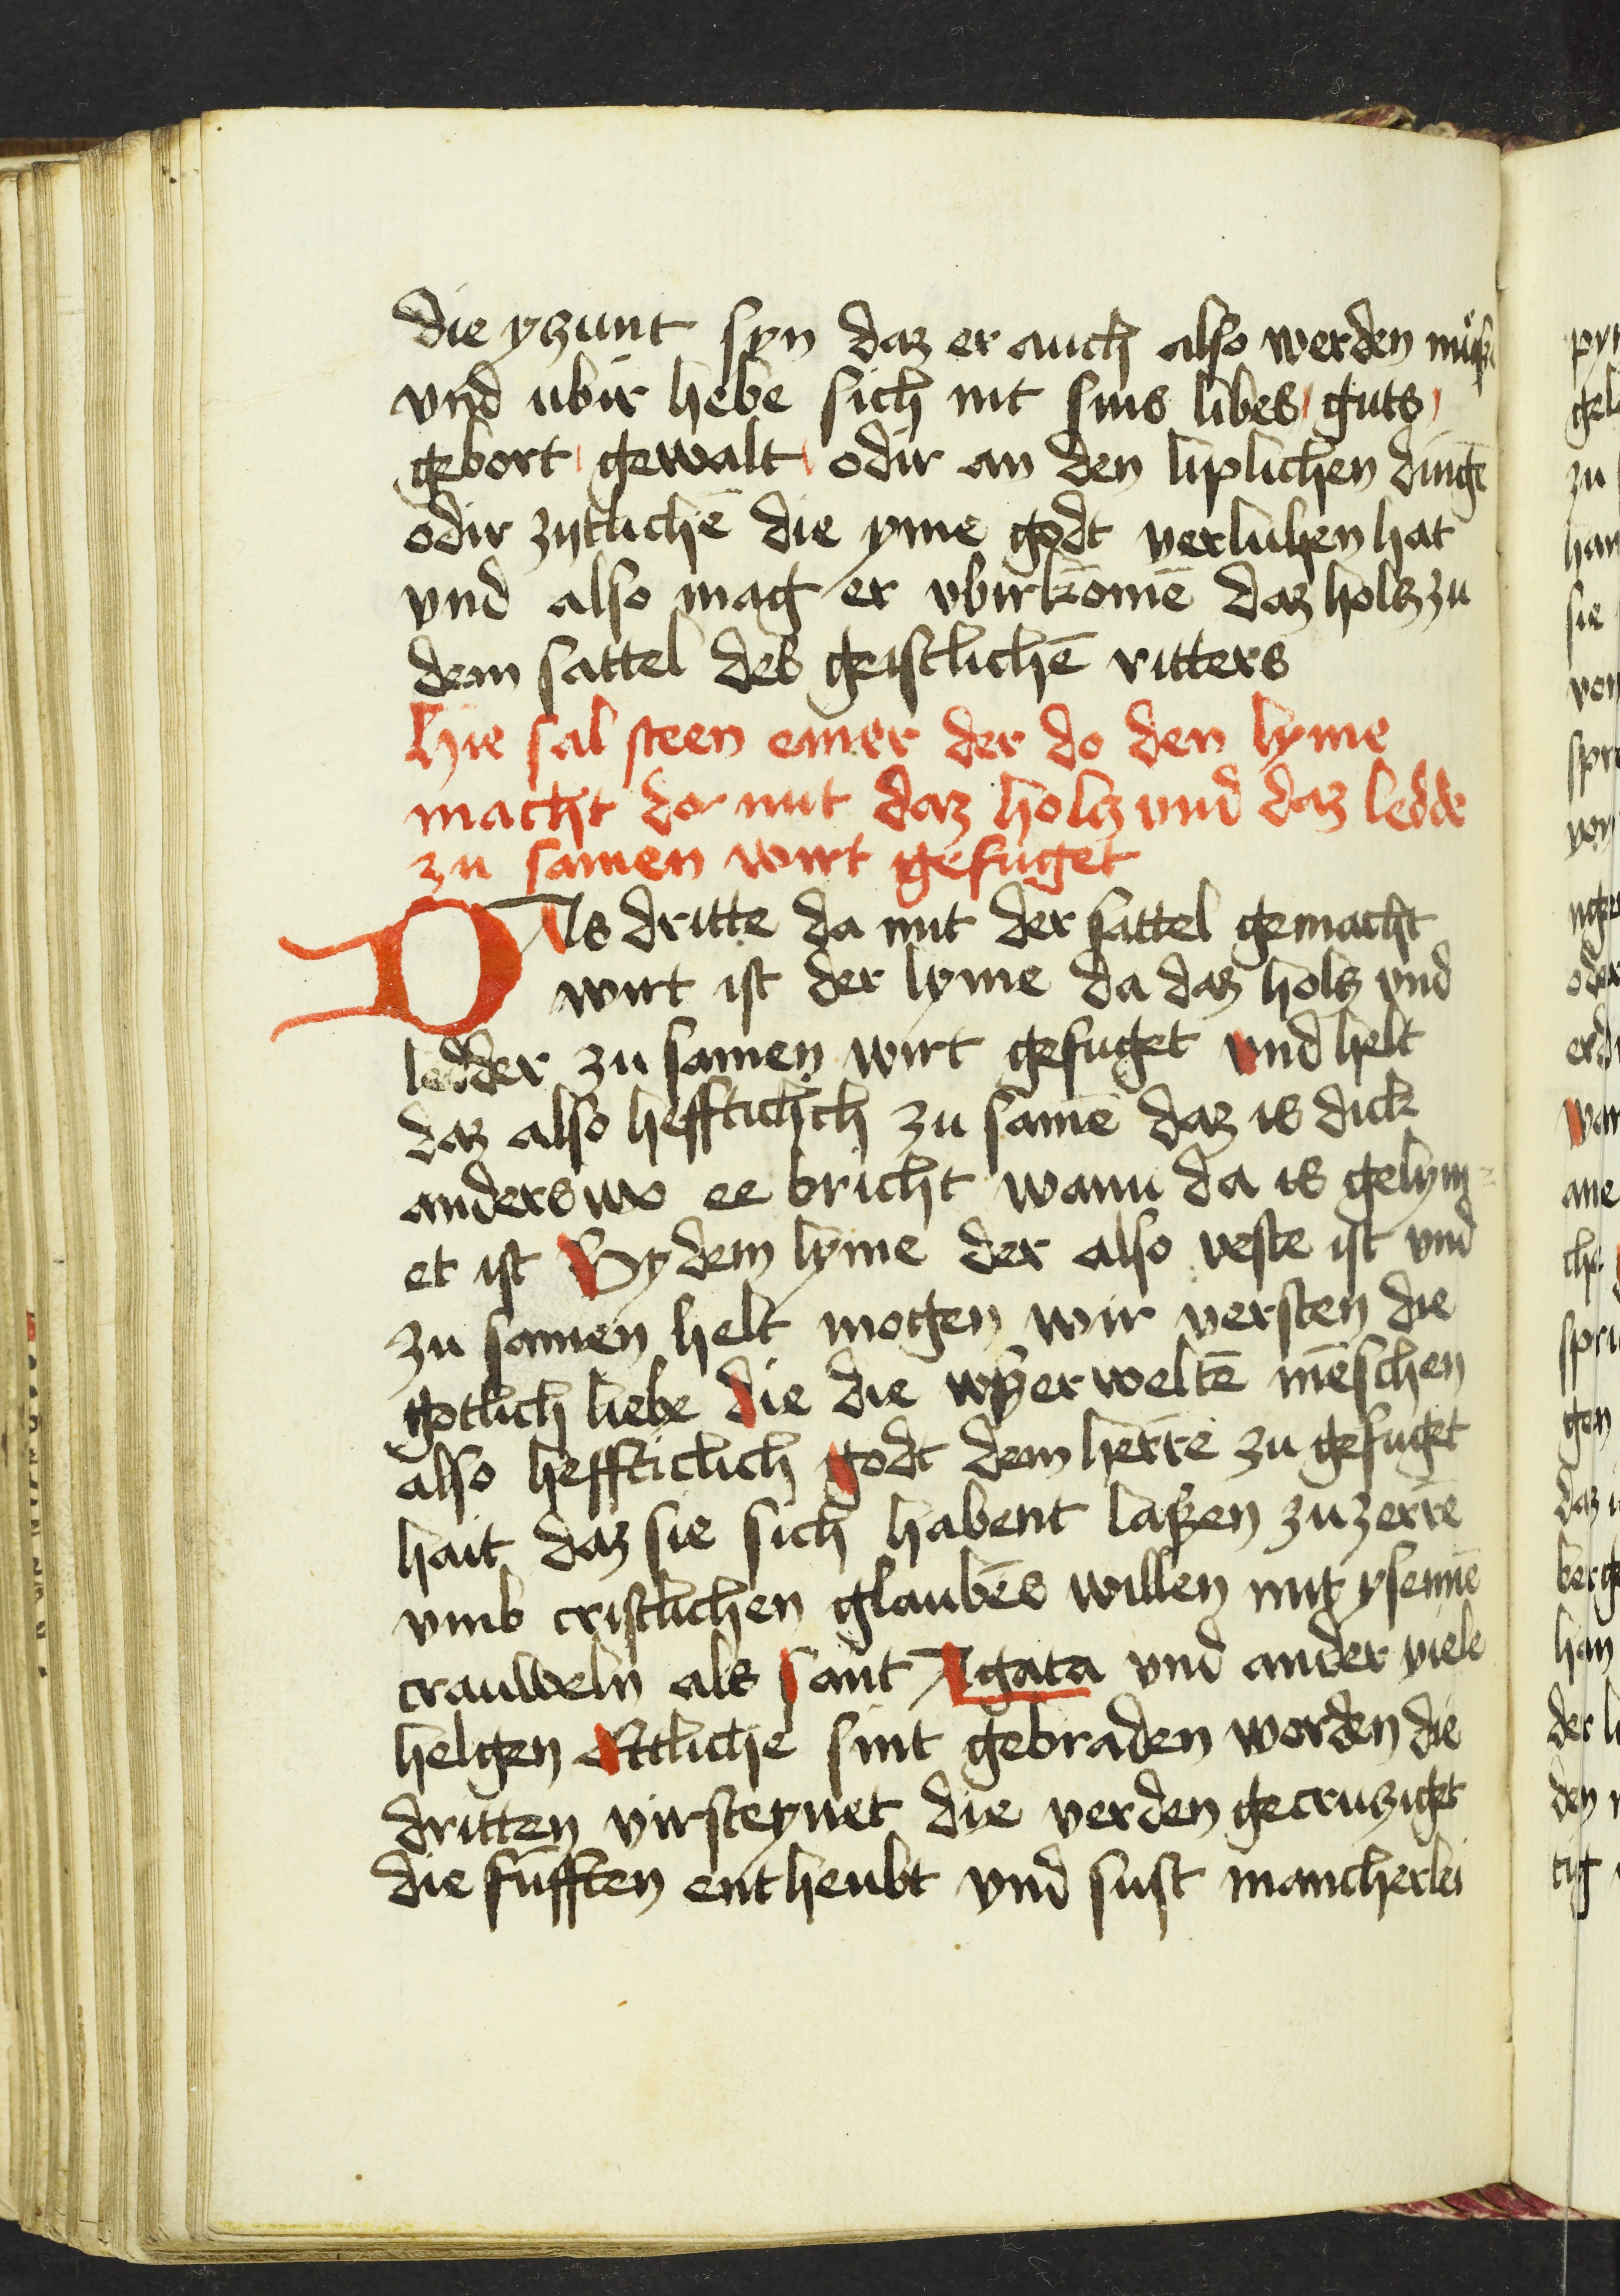 die yczunt syn daz er auch also werden muß
vnd ubir hebe sich nit sins libes guts
gebort gewalt odir an den liplichen dingē
odir zytlichē die yme godt verluhen hat
vnd also mag er vbirkomē daz holcz zu
dem sattel des geistlichē ritters
hie sal steen einer der do den lyme
macht do mit daz holcz vnd daz ledder
zu samen wirt gefuget
DAs dritte da mit der sattel gemacht
wirt ist der lyme da daz holcz vnd
ledder zu samen wirt gefuget vnd helt
daz also hefftichlich zu samē daz is dick
anderswo ee bricht wann da is gelym=
et ist By dem lyme der also veste ist vnd
zu samen helt mogen wir versten die
gotlich liebe die die vßerweltē mēschen
also hefftichlich godt dem herrē zu gefuget
hait daz sie sich habent laßen zuzerrē
vmb cristlichen glaubēs willen mit ysennē
crauweln als sant Agata vnd ander viele
helgen Ettliche sint gebraden worden die
dritten virsteynet die verden gecrucziget
die fufften entheubt vnd sust mancherlei